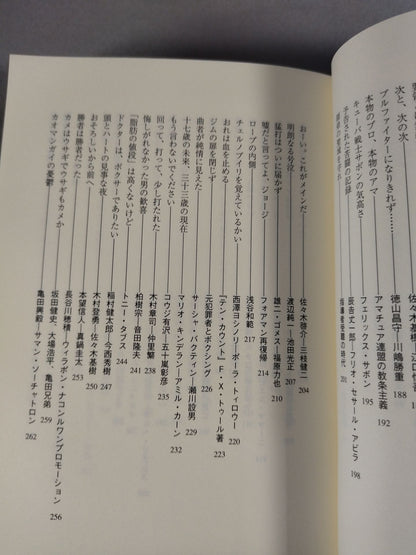 次と、次の次
佐々木基樹—江口
ブルファイターになりきれず……
徳山昌守—川嶋勝重 188
本物のプロ、本物のアマ
アマチュア連盟の教条主義 192
キューバ戦士サボンの気高さ
フェリックス・サボン 195
予告された悪夢の記録
辰吉丈一郎—フリオ・セサール・アビラ 198
指導者受難の時代 201
おーいっ これがメインだー
佐々木啓介—三枝健二 204
明朗なる号泣
渡辺純一—池田光正 207
猛打はついに届かず
雄二・ゴメス—福原力也 210
嘘だと言ってよ、ジョージ
フォアマン再復帰 214
ロープの内側
浅谷和範 217
チェルノブイリを覚えているかい
西澤ヨシノリ—ポーラ・トィロウー 220
おれは血を止める
『テン・カウント』F・X・トゥール著 223
ジムの扉を閉じず
元犯罪者とボクシング 226
曲者が純情に見えた
サーシャ・バクティン—瀬川設男 229
十七歳の未来、三十三歳の現在
マリオ・キンデラン—アミル・カーン 232
もう言わないでください
コウジ有沢—五十嵐彰彦 235
回って、打って、少し打たれた
木村章司—仲里繁 238
悔しがれなかった男の歓喜
柏樹宗—音田隆夫 241
「脂肪の値段」は高くないけど
トニー・タブス 244
ドクターは、ボクサーでありたい
稲村健太郎—今西秀樹 247
頭とハートの見事な夜
木村登勇—佐々木基樹 250
おそろしいから前へ
本望信人—真鍋圭太 253
勝者は勝者だった
長谷川穂積—ウィラポン・ナコンルワンプロモーション 256
カメはウサギでウサギもカメか
坂田健史、大場浩平、亀田兄弟 259
カオマンガイの憂鬱
亀田興毅—サマン・ソーチャトロン 262